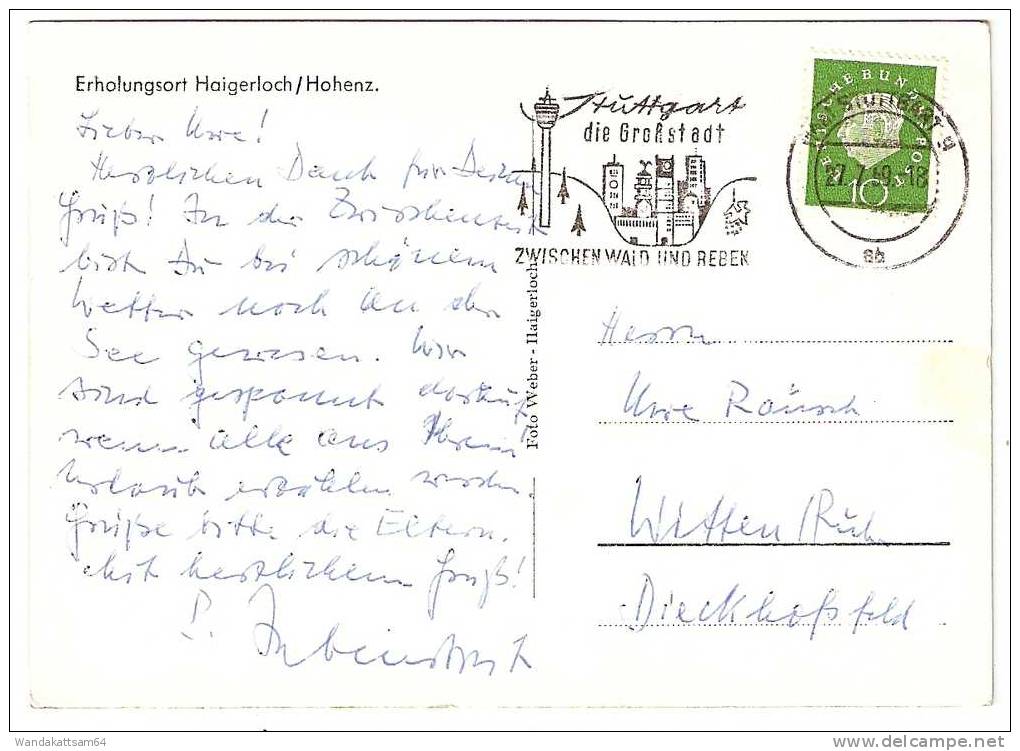 Erholungsort Haigerloch/Hohenz.
Lieber Uwe!
Herzlichen Dank für Deinen
Gruß! In der Zwischenzeit
bist Du bei schönem
Wetter noch an der
See gewesen. Wir
sind gespannt darauf,
wenn alle aus Ihrem
Urlaub erzählen werden.
Grüße bitte die Eltern.
Mit herzlichem Gruß!
Foto Weber - Haigerloch
Stuttgart
die Großstadt
ZWISCHEN WALD UND REBEN
STUTTGART 9
27.7.59.-18
ab
DEUTSCHE BUNDESPOST
10
Herrn
Uwe Räusch
Witten/Ruhr
Dieckhoffsfeld
Wandakattsam64
www.delcampe.net